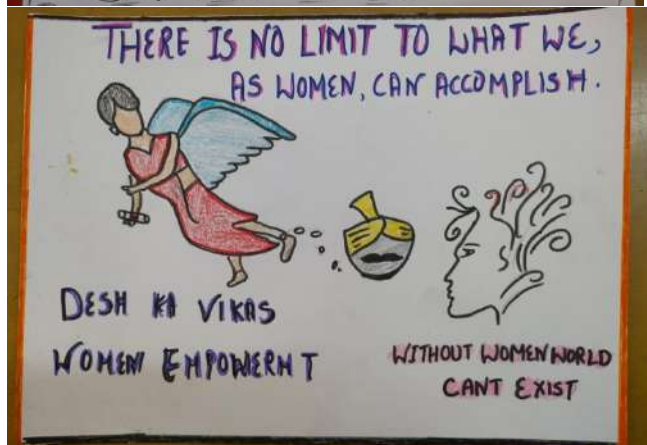 THERE IS NO LIMIT TO WHAT WE,
AS WOMEN, CAN ACCOMPLISH.
DESH KA VIKAS
WOMEN EMPOWERMT
WITHOUT WOMEN WORLD
CANT EXIST